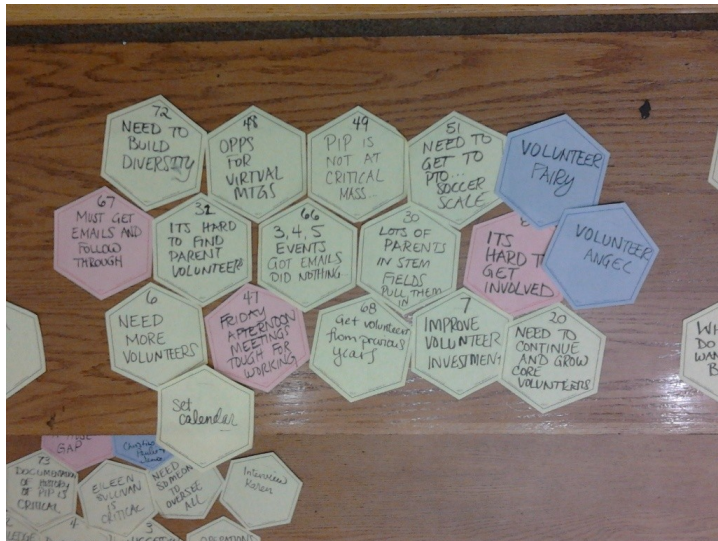 72
NEED TO
BUILD
DIVERSITY
48
OPPS
FOR
VIRTUAL
MTGS
49
PIP IS
NOT AT
CRITICAL
MASS...
51
NEED TO
GET TO
PTO...
SOCCER
SCALE
VOLUNTEER
FAIRY
67
MUST GET
EMAILS AND
FOLLOW
THROUGH
32
ITS HARD
TO FIND
PARENT
VOLUNTEERS
66
3, 4, 5
EVENTS
GOT EMAILS
DID NOTHING
30
LOTS OF
PARENTS
IN STEM
FIELDS
PULL THEM
IN
ITS
HARD T
GET
INVOLVED
VOLUNTEER
ANGEL
6
NEED
MORE
VOLUNTEERS
47
FRIDAY
AFTERNOON
MEETINGS
TOUGH FOR
WORKING
68
Get volunteer
from previous
years
7
IMPROVE
VOLUNTEER
INVESTMENT
20
NEED TO
CONTINUE
AND GROW
CORE
VOLUNTEERS
Set
calendar
WH
DO
WAN
B
GAP
73
DOCUMENTATION
OF HISTORY
OF PIP IS
CRITICAL
EILEEN
SULLIVAN
IS
CRITICAL
NEED
SOMEON
TO
OVERSEE
ALL
Interview
Karen
4
3
OPERATIONS